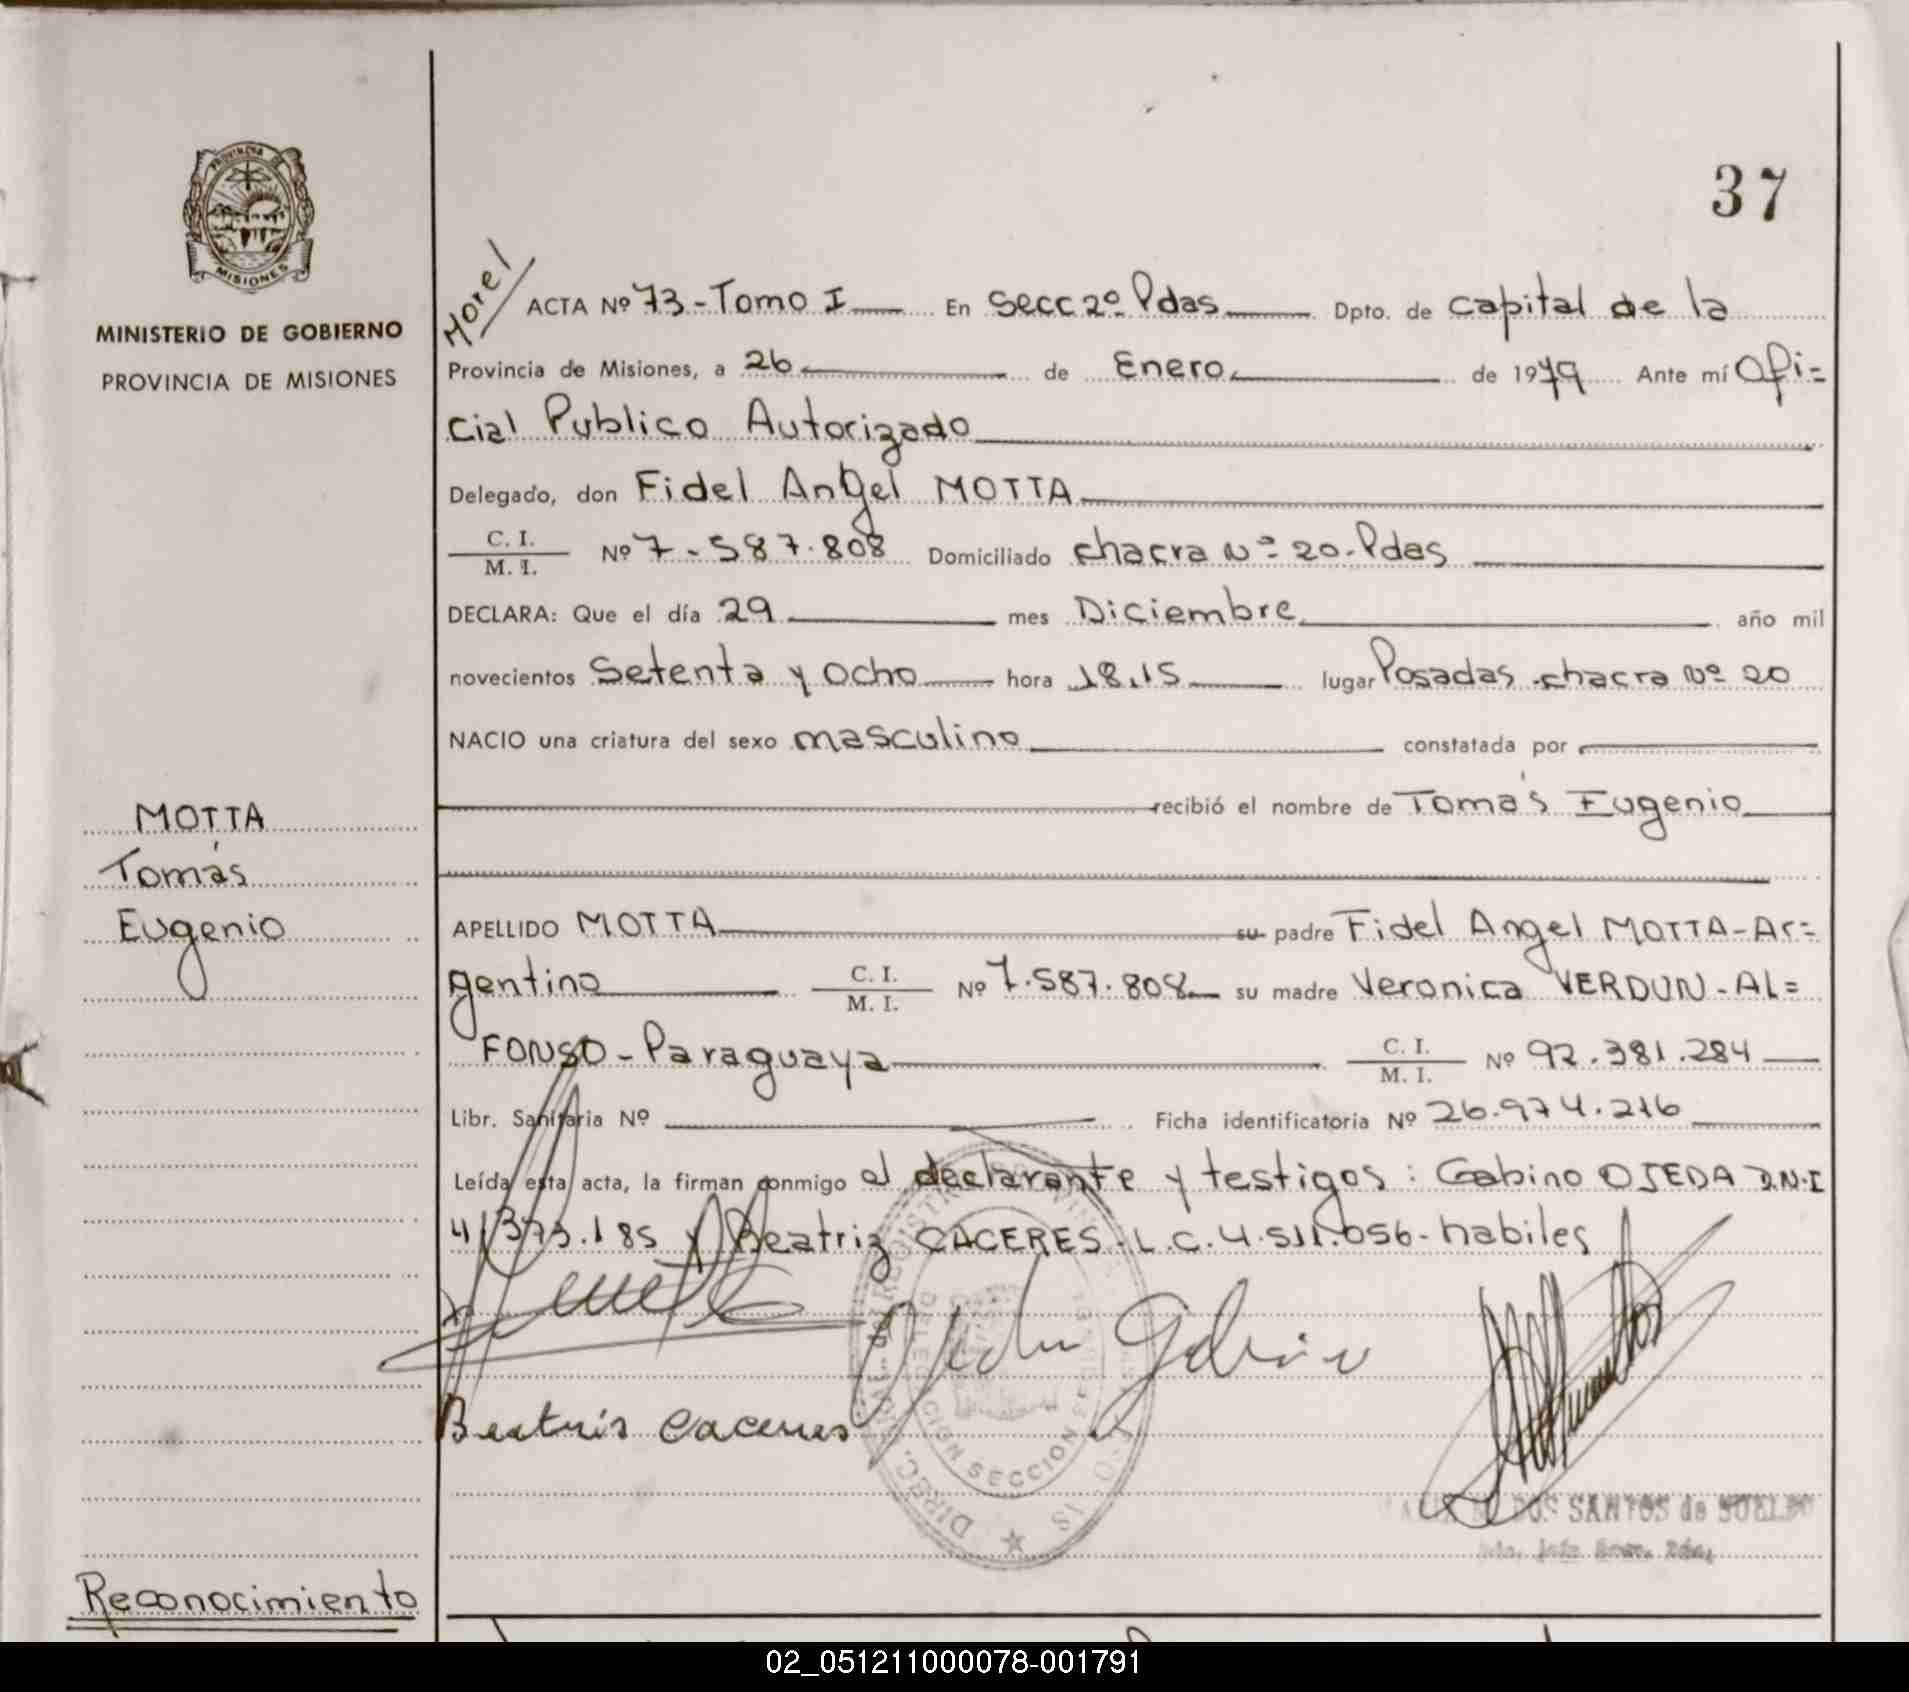 37
PROVINCIA DE
MISIONES
MINISTERIO DE GOBIERNO
PROVINCIA DE MISIONES
Morel
ACTA Nº 73-Tomo I En Secc 2º Pdas Dpto. de Capital de la
Provincia de Misiones, a 26 de Enero de 1979 Ante mí Ofi=
cial Publico Autorizado
Delegado, don Fidel Angel MOTTA
C. I. / M. I. Nº 7-587.808 Domiciliado chacra Nº 20-Pdas
DECLARA: Que el día 29 mes Diciembre año mil
novecientos Setenta y Ocho hora 18,15 lugar Posadas chacra Nº 20
NACIO una criatura del sexo masculino constatada por
recibió el nombre de Tomás Eugenio
MOTTA
Tomás
Eugenio
APELLIDO MOTTA su padre Fidel Angel MOTTA-Ar=
gentino C. I. / M. I. Nº 7.587.808 su madre Veronica VERDUN-AL=
FONSO-Paraguaya C. I. / M. I. Nº 92.381.284
Libr. Sanitaria Nº Ficha identificatoria Nº 26.974.216
Leída esta acta, la firman conmigo el declarante y testigos: Gabino OJEDA D.N.I
373.185 y Beatriz CACERES.L.C.4.511.056-habiles
Beatris Caceres
SECCION
DOS SANTOS de SUELDO
Reconocimiento
02_051211000078-001791